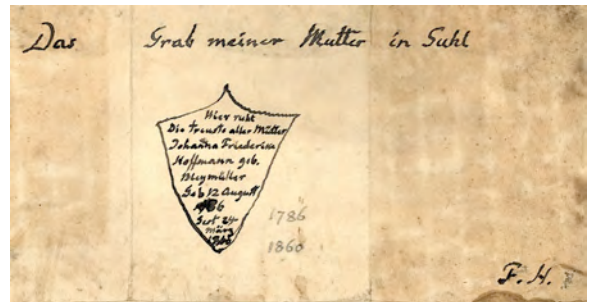 Das Grab meiner Mutter in Suhl
Hier ruht
Die treuste aller Mütter
Johanna Friedericke
Hoffmann geb.
Geb 12 August
Gest 24
März
1786
1860
F. H.